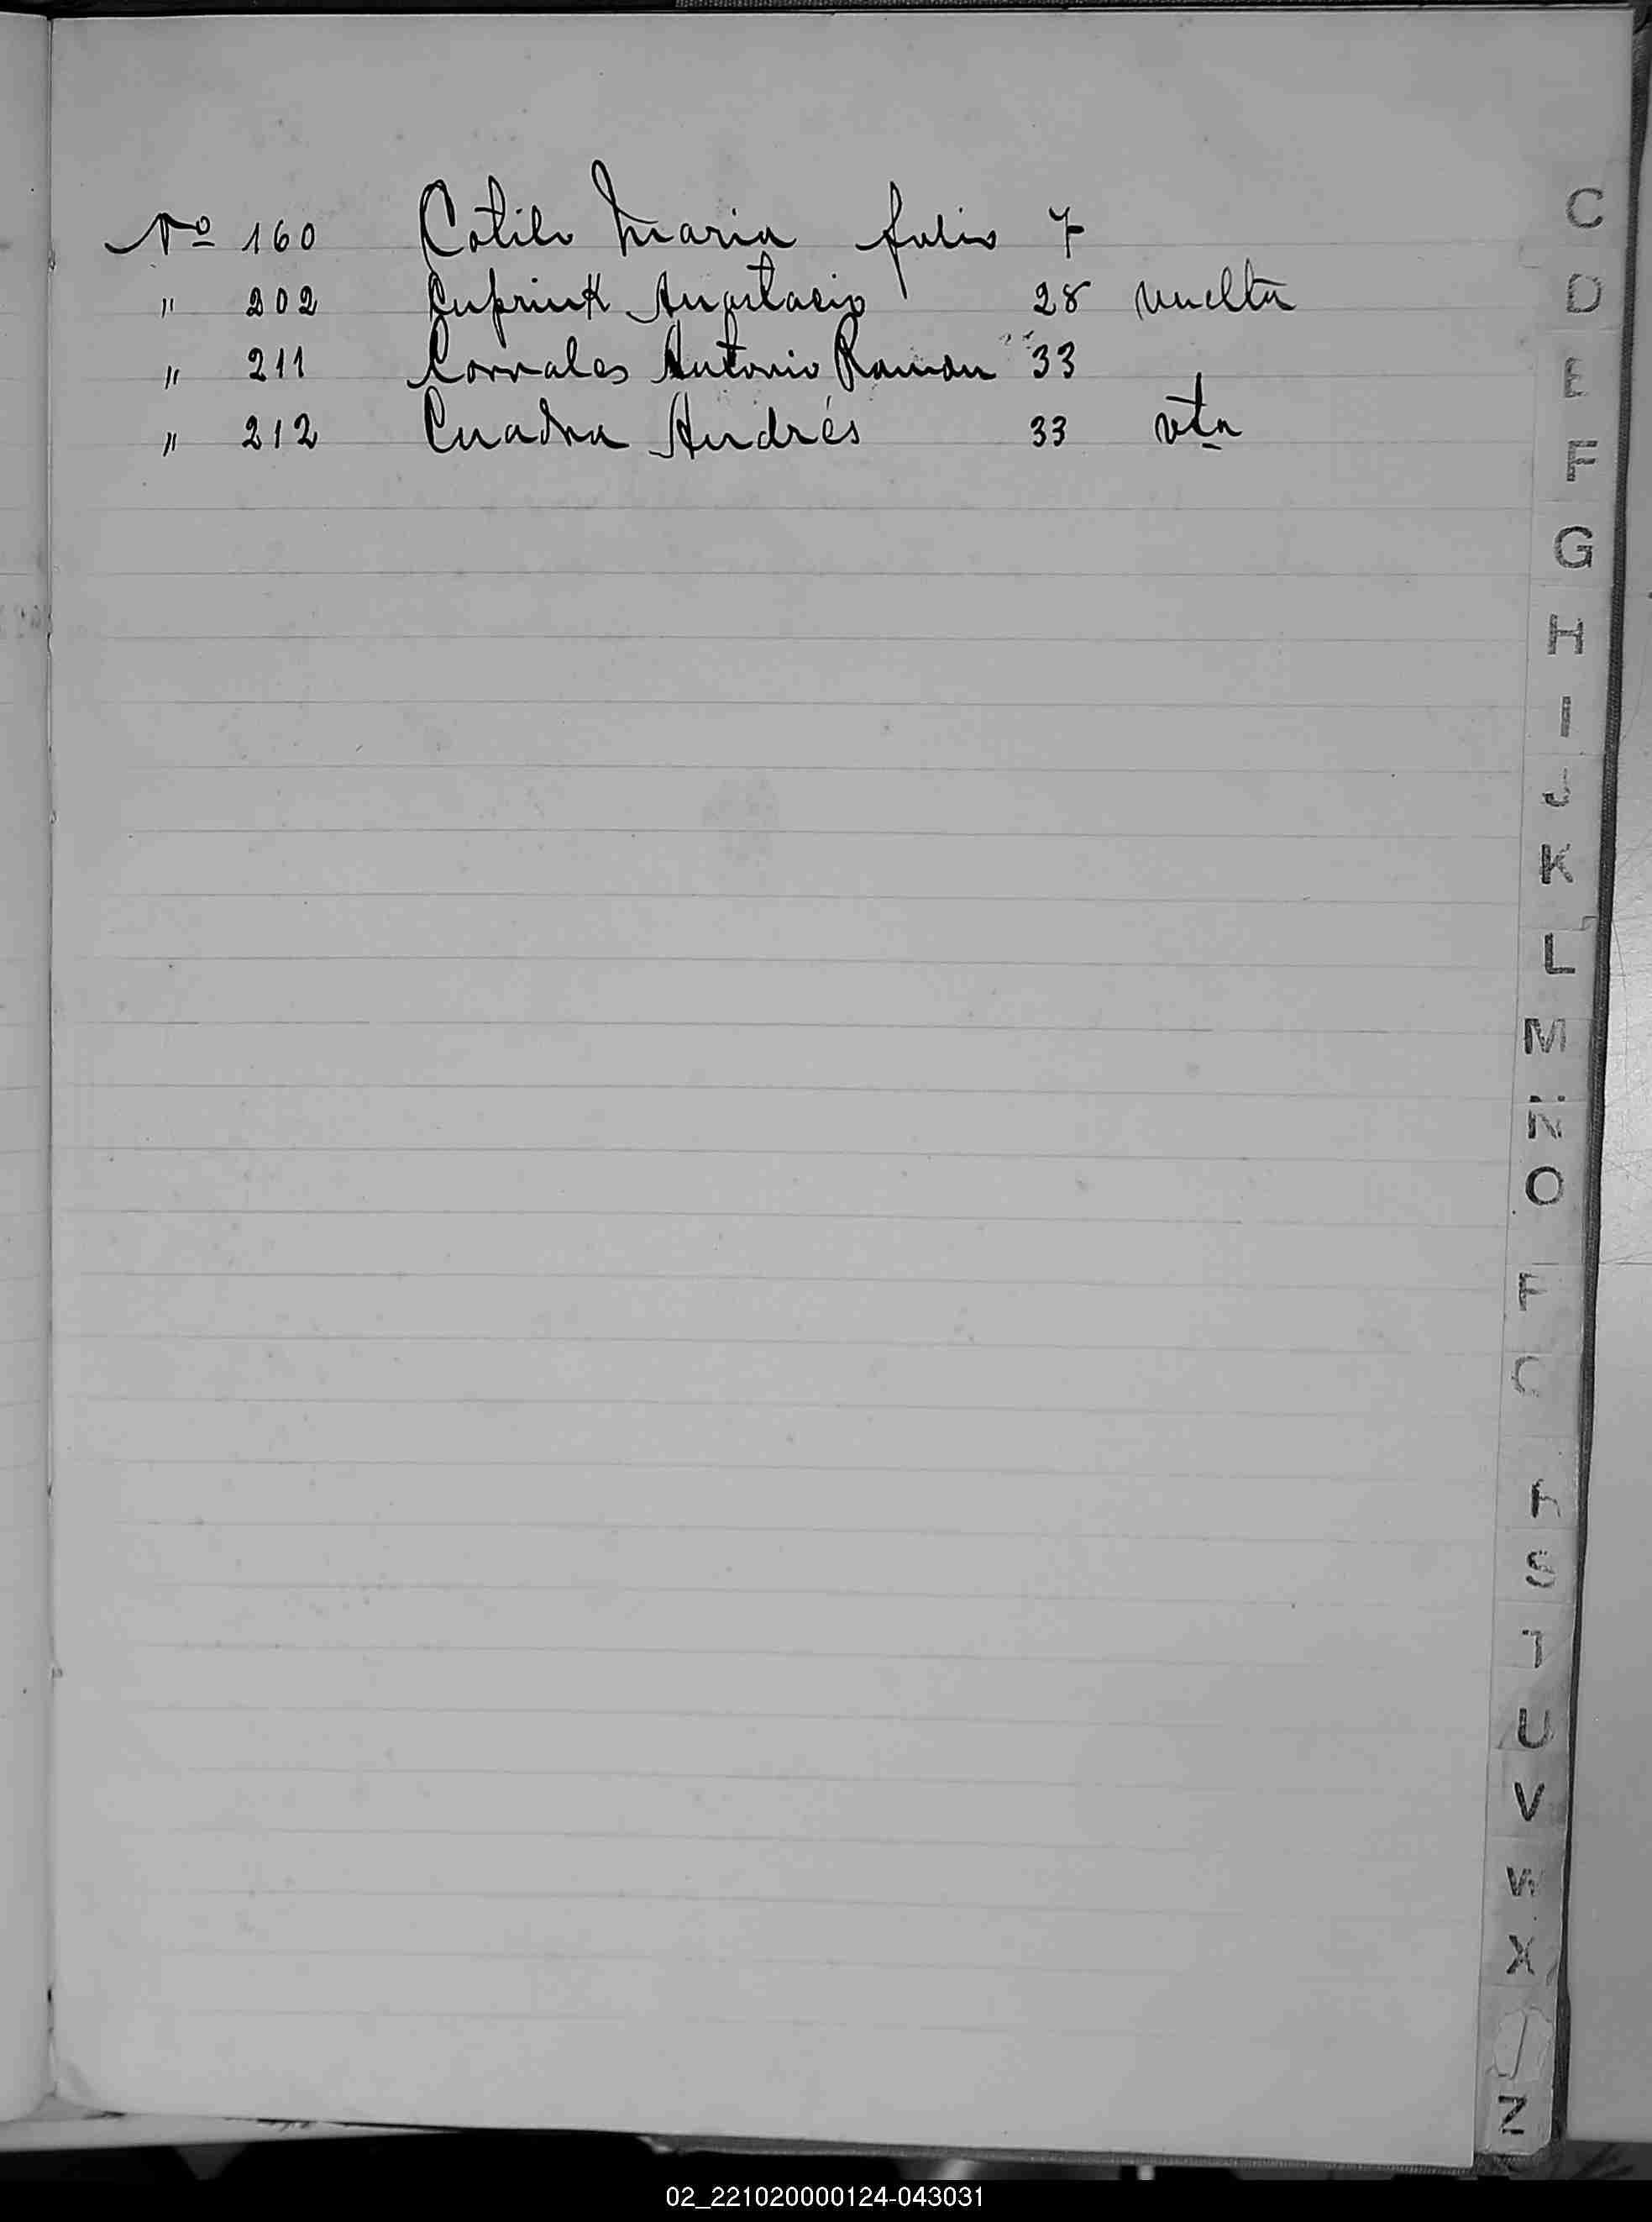 Nº 160 Cotilo Maria folio 7
" 202 Cuprink Anastacio 28 vuelta
" 211 Corrales Antonio Ramon 33
" 212 Cuadra Andrés 33 vta
C
D
E
F
G
H
I
J
K
L
M
N
O
S
U
V
W
X
Z
02_221020000124-043031